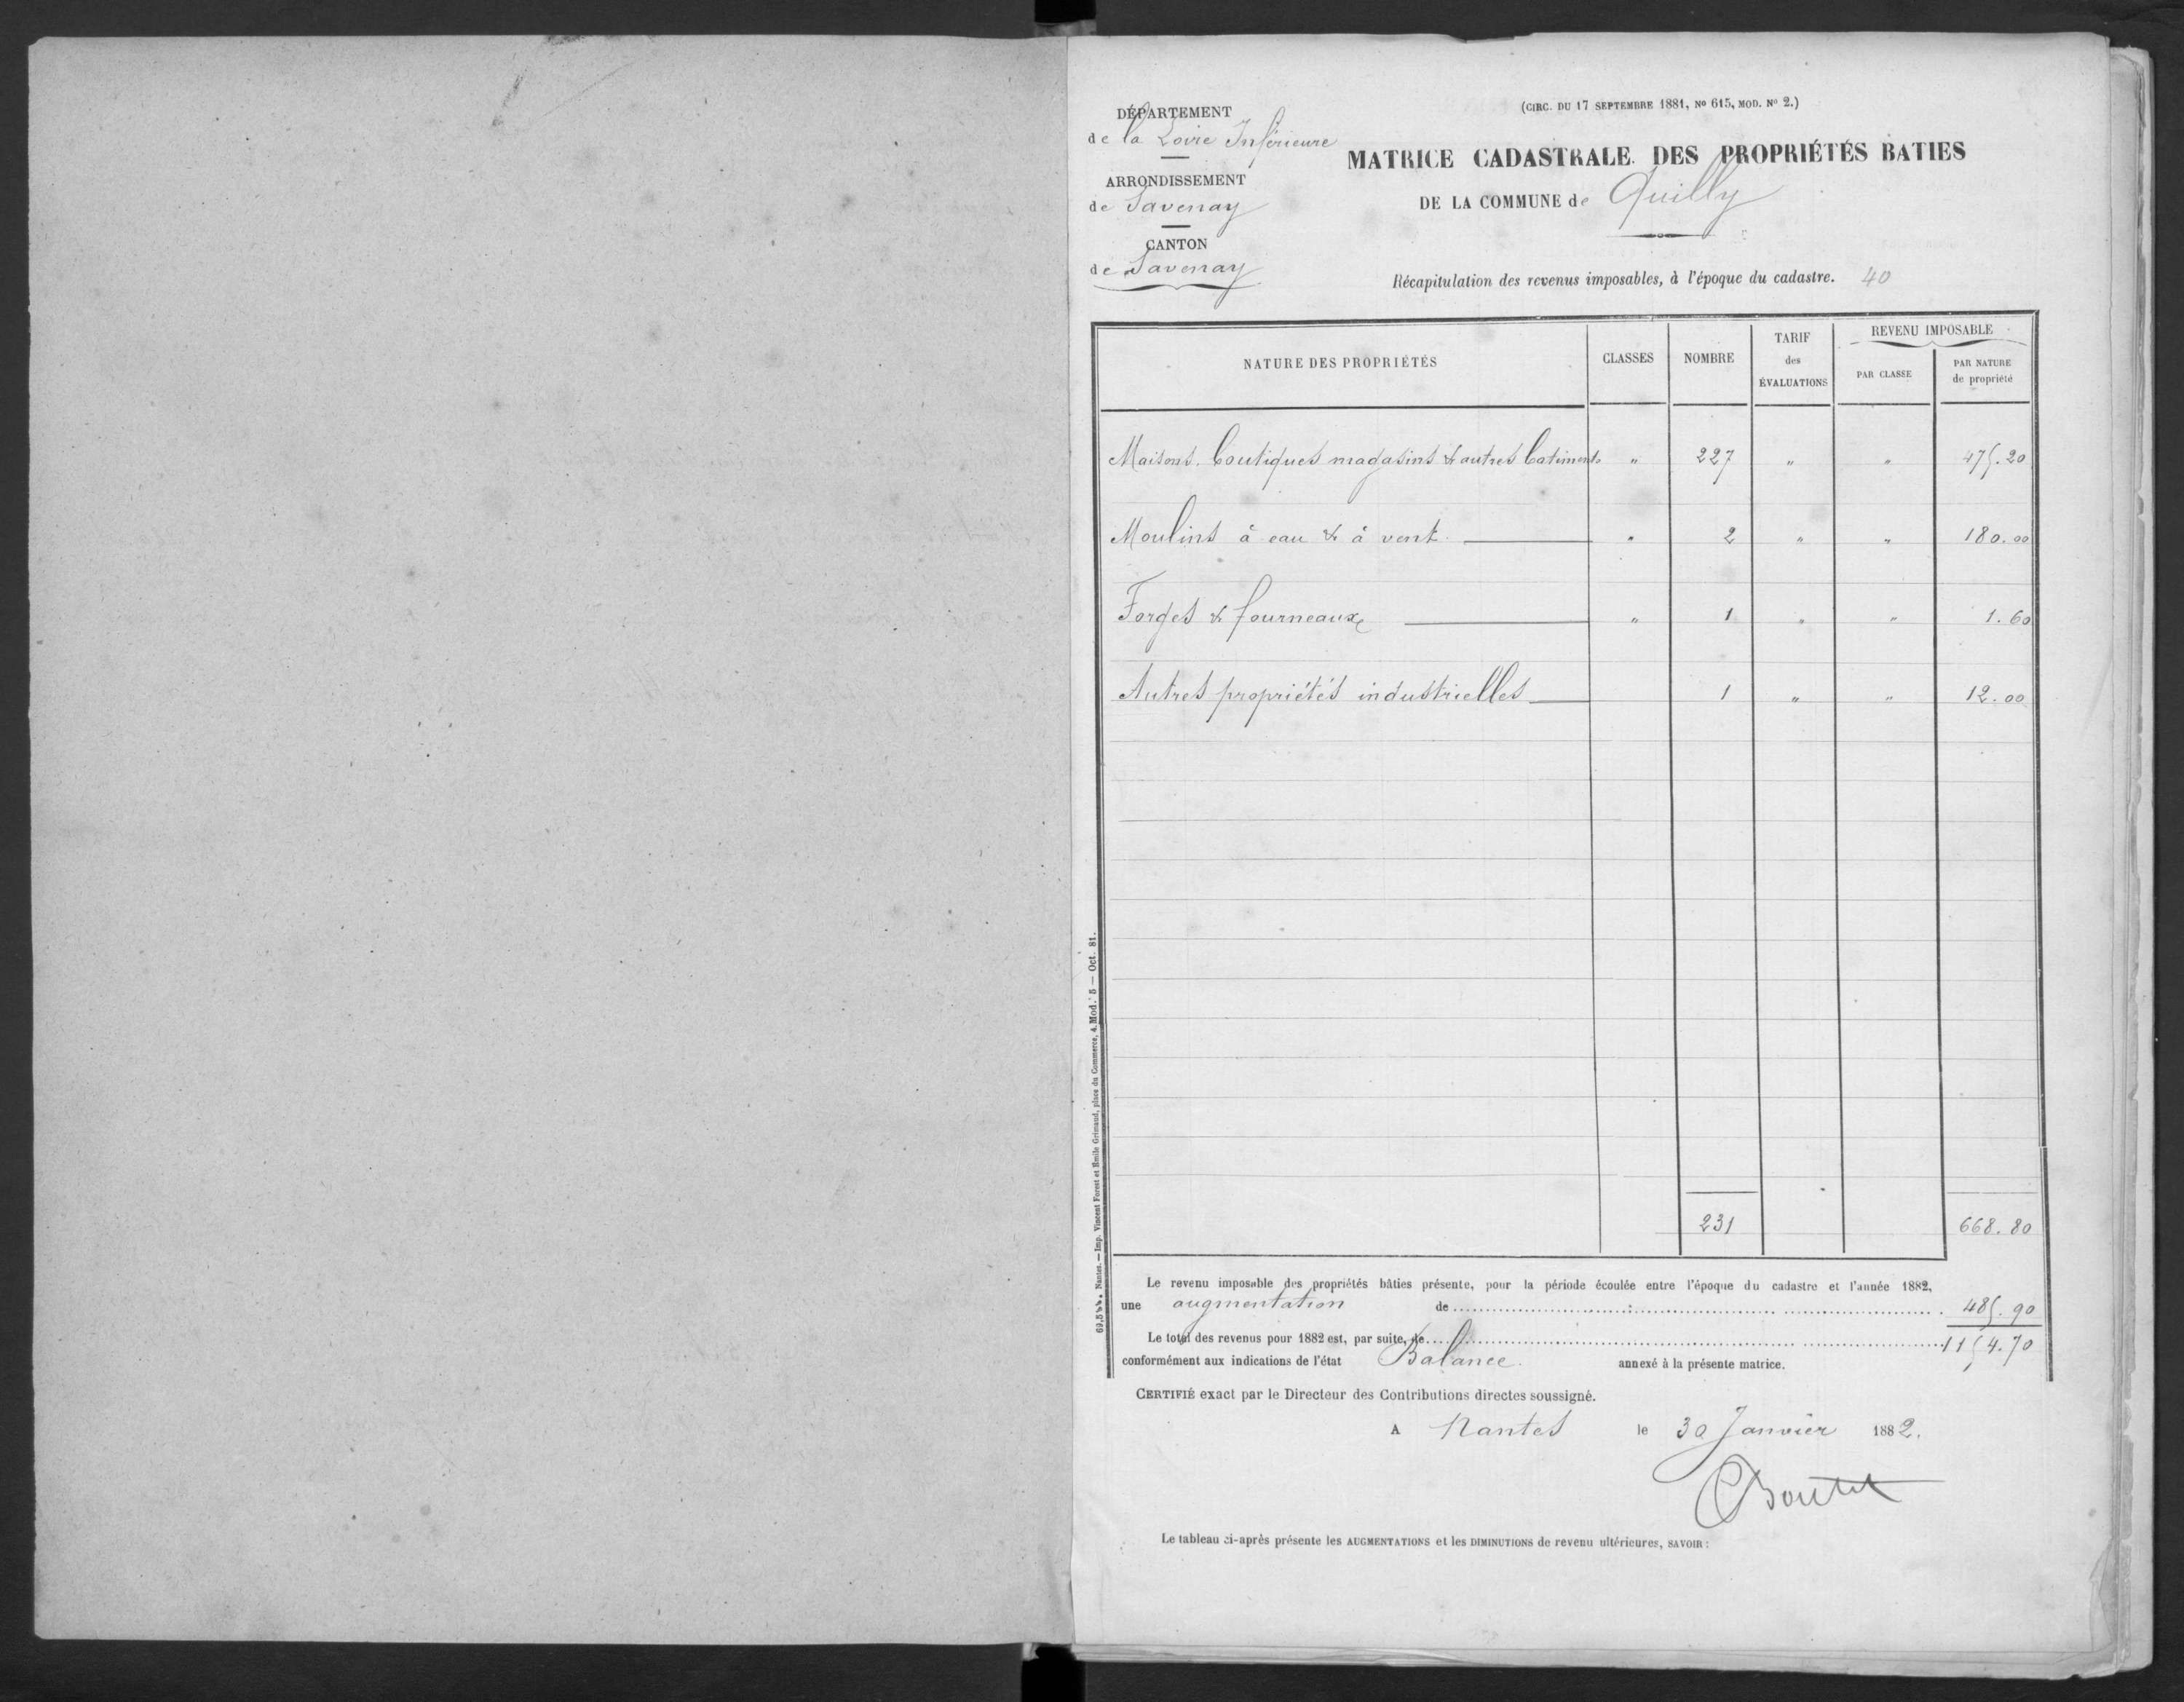 DÉPARTEMENT
de la Loire Inférieure
ARRONDISSEMENT
de Savenay
CANTON
de Savenay
(CIRC. DU 17 SEPTEMBRE 1881, No 615, MOD. No 2.)
MATRICE CADASTRALE DES PROPRIÉTÉS BATIES
DE LA COMMUNE de Quilly
Récapitulation des revenus imposables, à l'époque du cadastre. 40
NATURE DES PROPRIÉTÉS
CLASSES
NOMBRE
TARIF
des
ÉVALUATIONS
REVENU IMPOSABLE
PAR CLASSE
PAR NATURE
de propriété
Maisons. boutiques magasins & autres batiments " 227 " " 475.20
Moulins à eau & à vent " 2 " " 180.00
Forges & fourneaux " 1 " " 1.60
Autres propriétés industrielles 1 " " 12.00
231 668.80
Le revenu imposable des propriétés bâties présente, pour la période écoulée entre l'époque du cadastre et l'année 1882,
une augmentation de 485.90
Le total des revenus pour 1882 est, par suite, de 1154.70
conformément aux indications de l'état Balance annexé à la présente matrice.
CERTIFIÉ exact par le Directeur des Contributions directes soussigné.
A Nantes le 30 Janvier 1882.
Le tableau ci-après présente les AUGMENTATIONS et les DIMINUTIONS de revenu ultérieures, SAVOIR :
Nantes. — Imp. Vincent Forest et Emile Grimaud, place du Commerce, 4. Mod. 5 — Oct. 81.